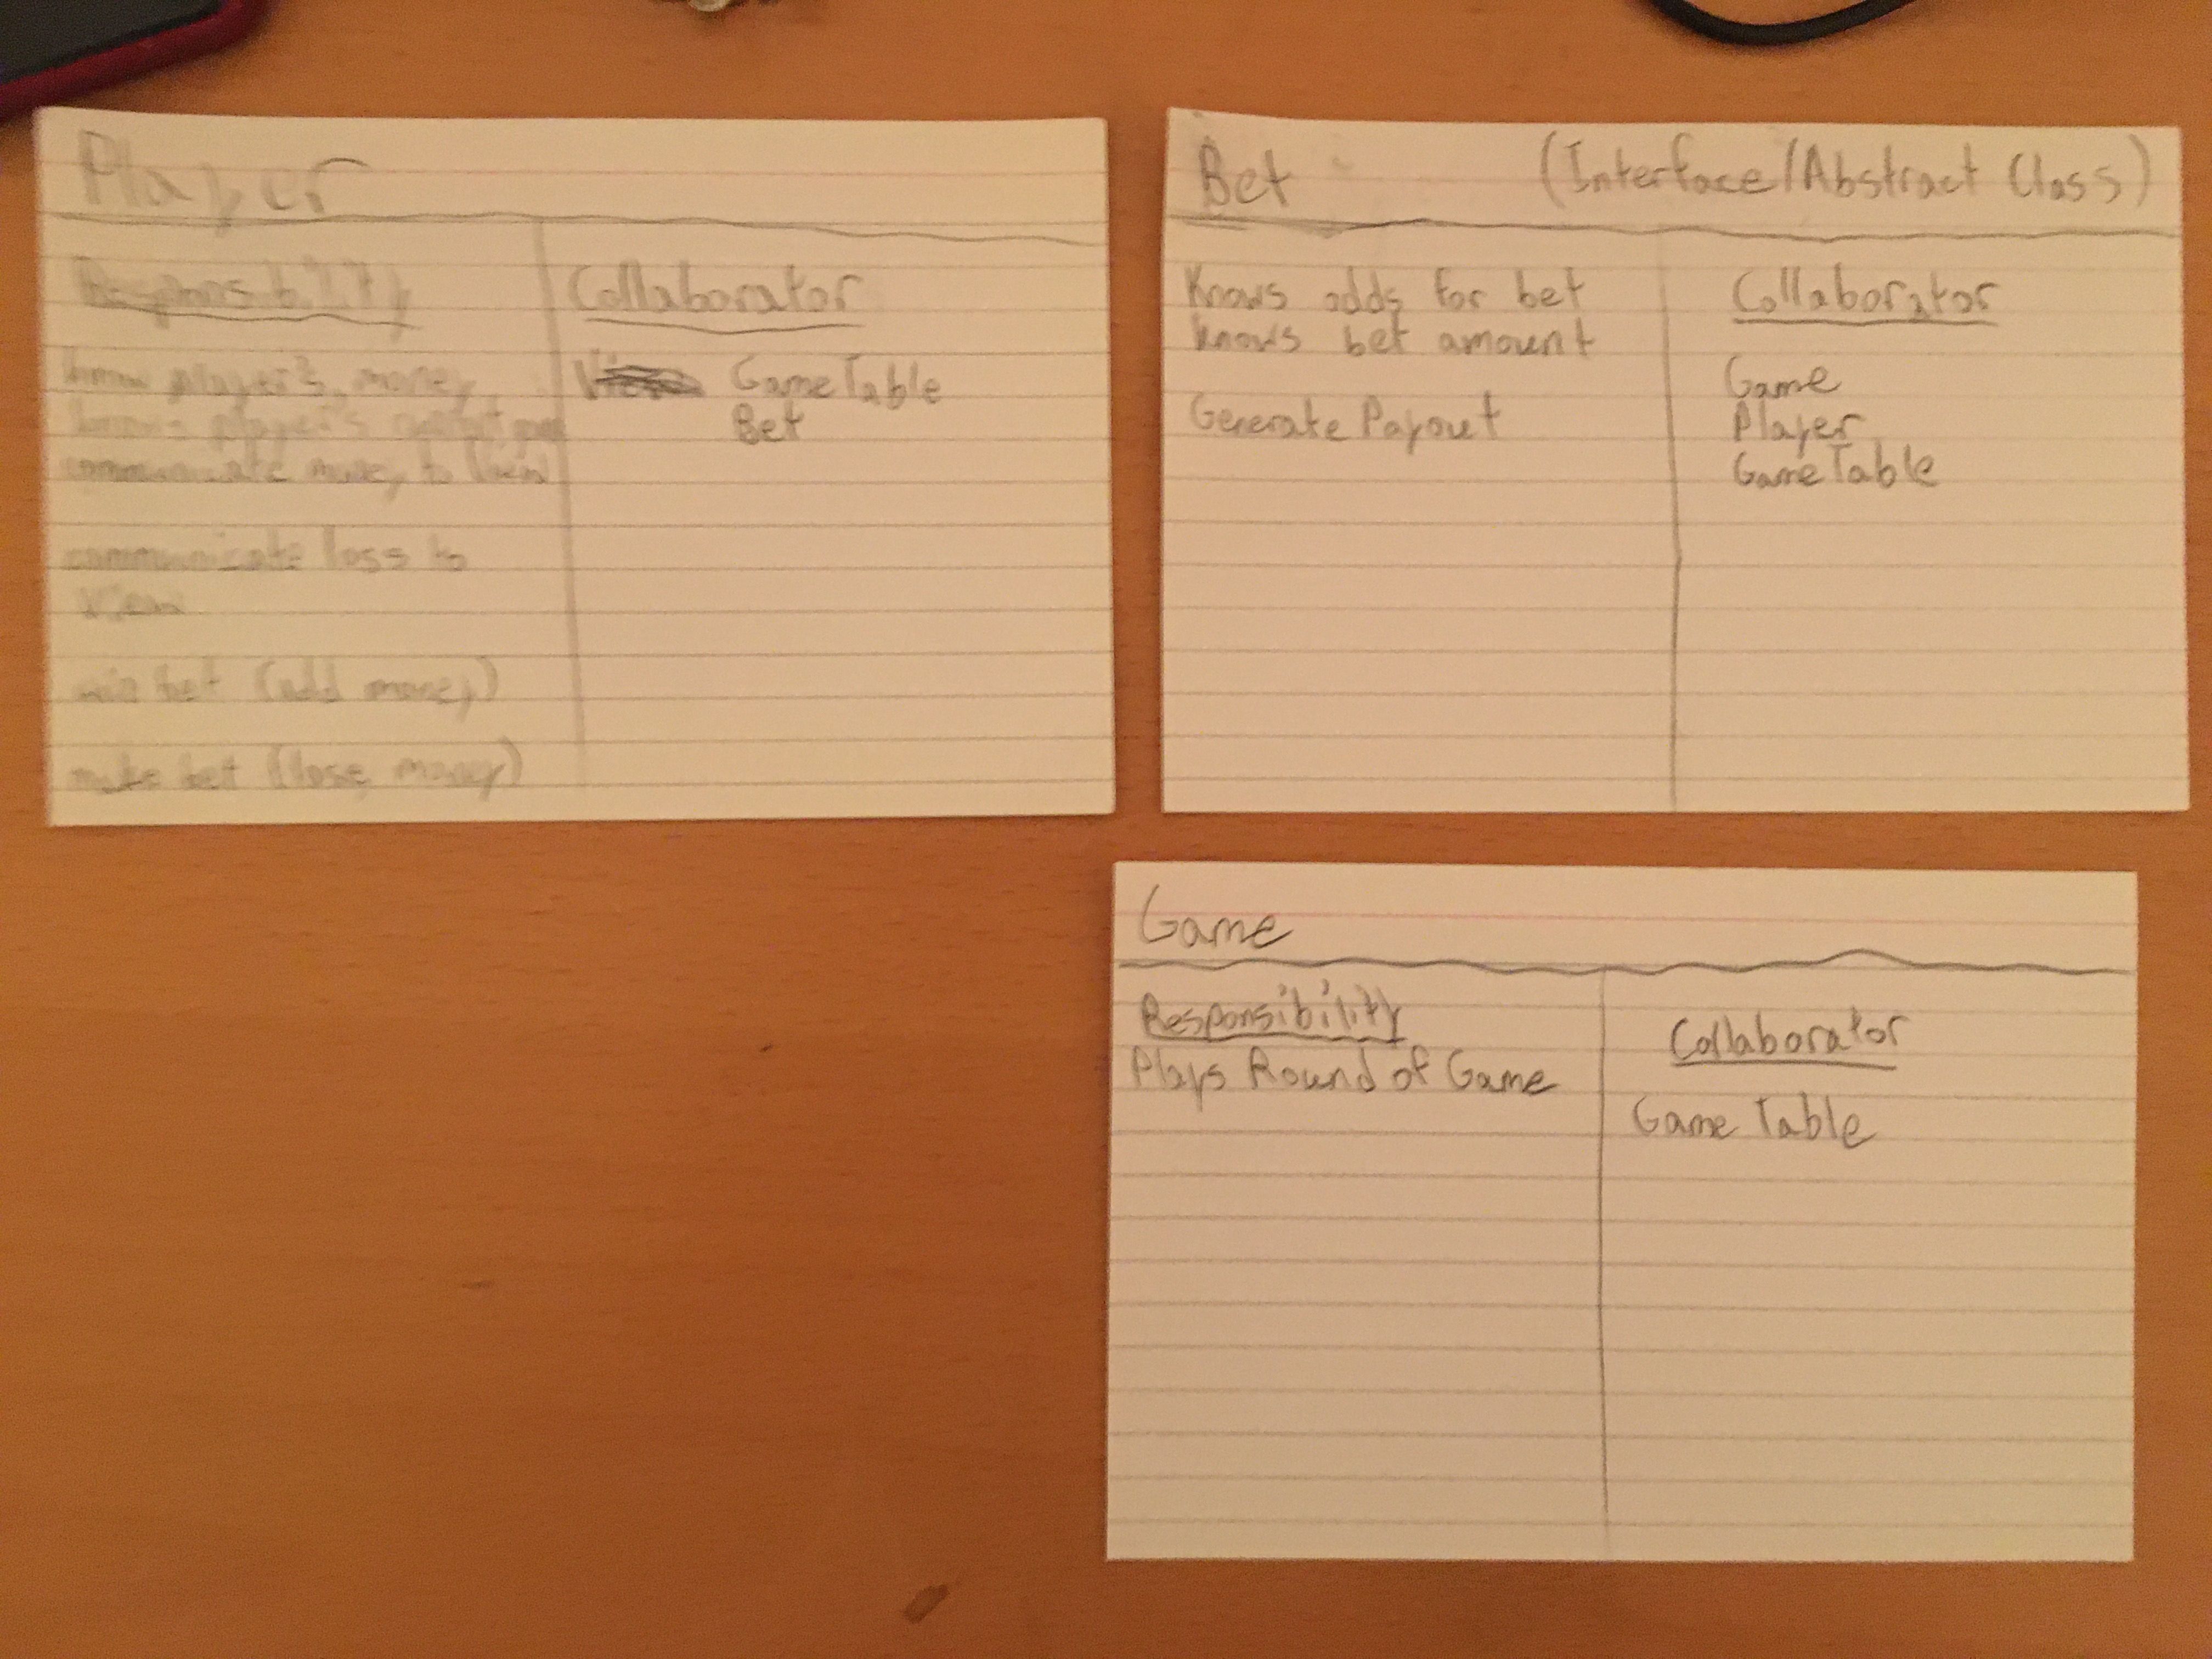 Player
Responsibility
know player's money
know player's
communicate money to View
communicate loss to
View
win bet (add money)
make bet (lose money)
Collaborator
GameTable
Bet
Bet (Interface/Abstract Class)
Knows odds for bet
knows bet amount
Generate Payout
Collaborator
Game
Player
GameTable
Game
Responsibility
Plays Round of Game
Collaborator
Game Table